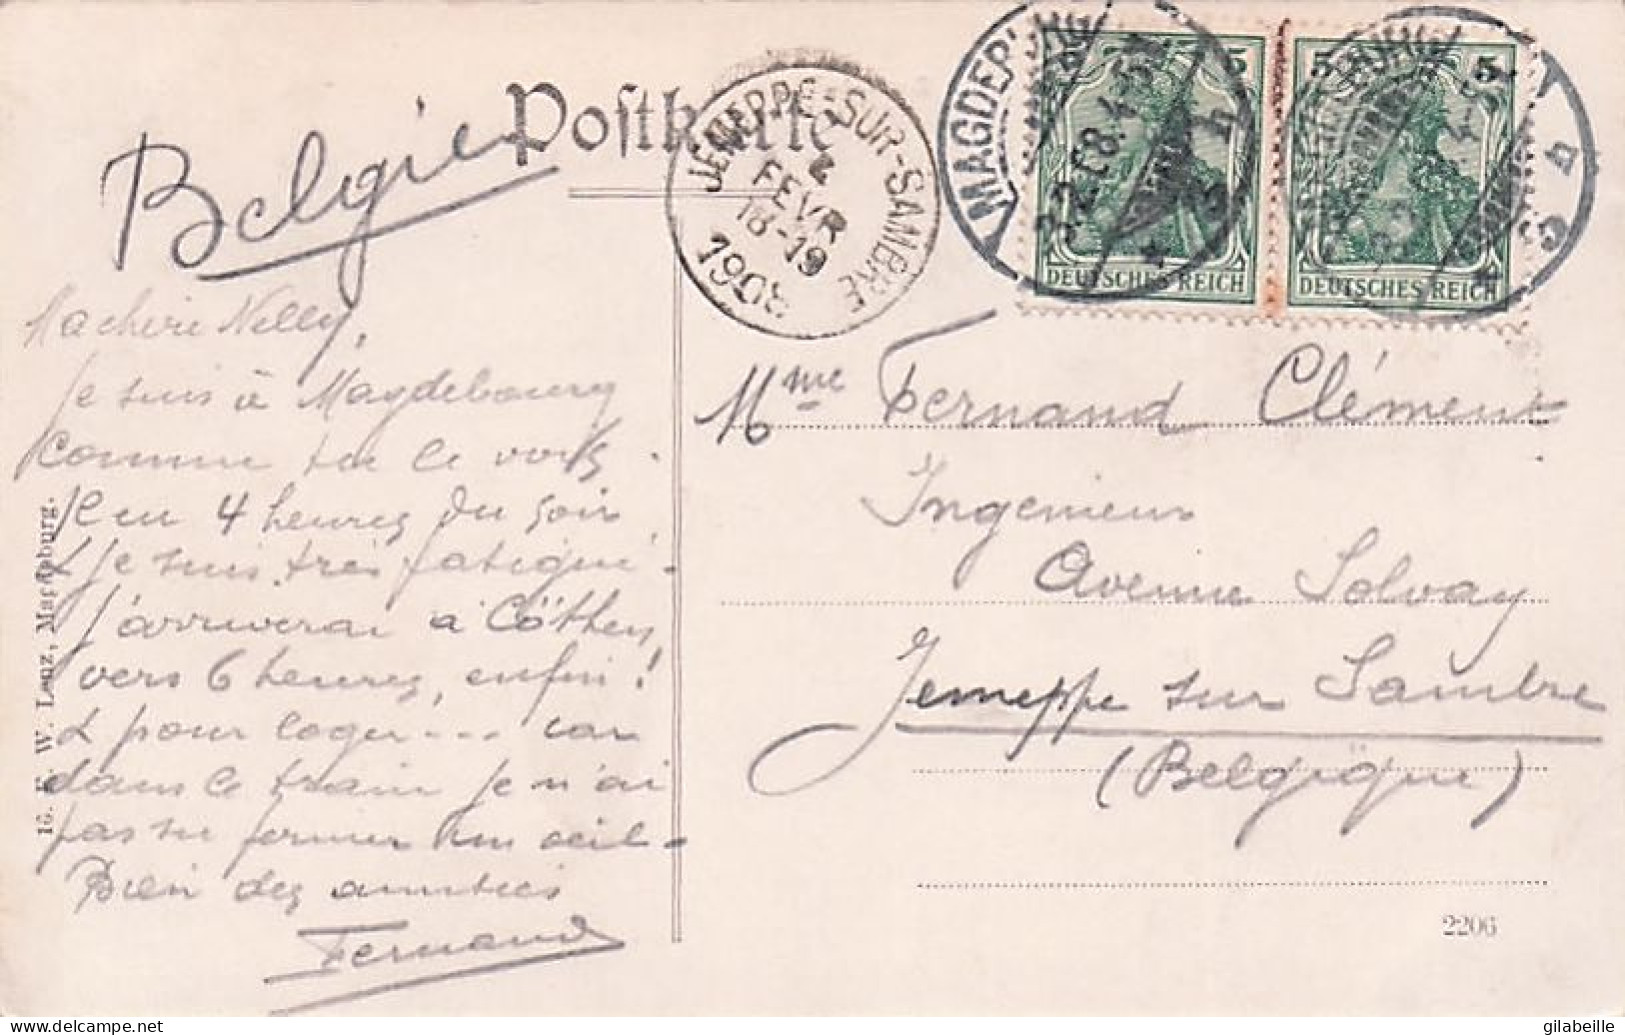 Postkarte
Belgien
JEMEPPE-SUR-SAMBRE
FEVR
18-19
1908
MAGDEBURG
3.2.08.4-5
DEUTSCHES REICH
5
DEUTSCHES REICH
5
5
Ma chère Nelly,
Je suis à Magdebourg
comme tu le vois.
Il est 4 heures du soir
& je suis très fatigué.
J'arriverai à Cöthen
vers 6 heures, enfin!
& pour loger... car
dans le train je n'ai
pas su fermer un oeil-
Bien des amitiés
Fernand
Mme Fernand Clément
Ingenieur
Avenue Solvay
Jemeppe sur Sambre
(Belgique)
W. Lenz, Magdeburg.
2206
gilabeille